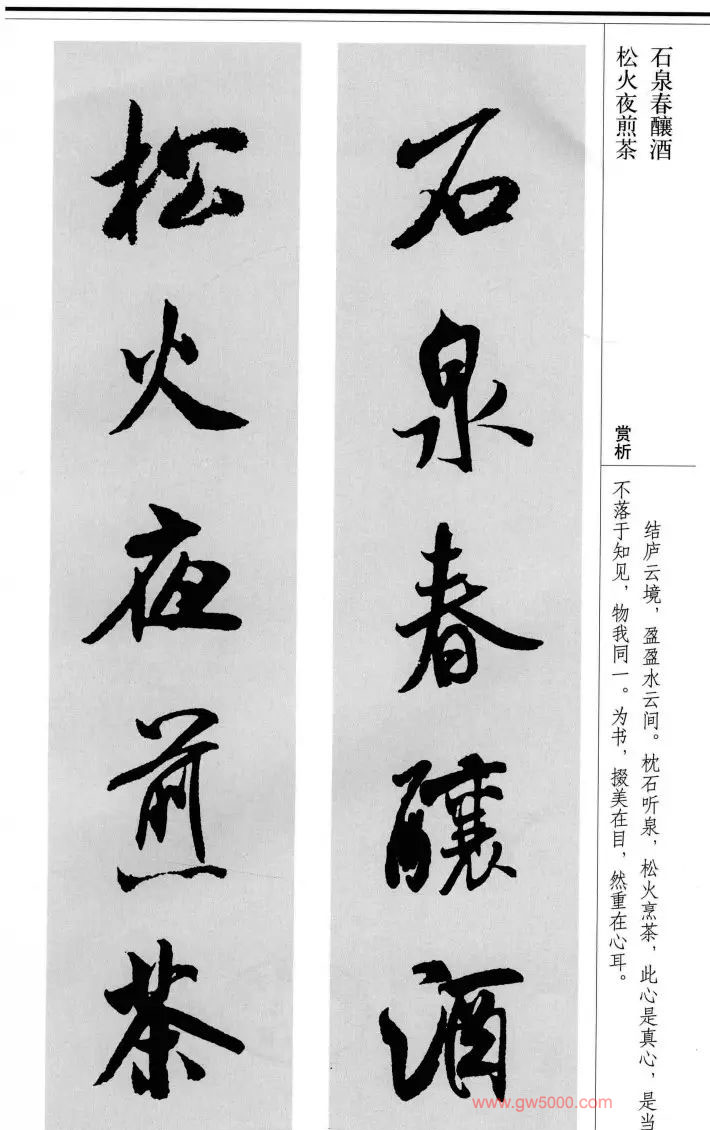 石泉春釀酒
松火夜煎茶
赏析
结庐云境，盈盈水云间。枕石听泉，松火烹茶，此心是真心，是当
不落于知见，物我同一。为书，掇美在目，然重在心耳。
石泉春釀酒
松火夜煎茶
www.gw5000.com